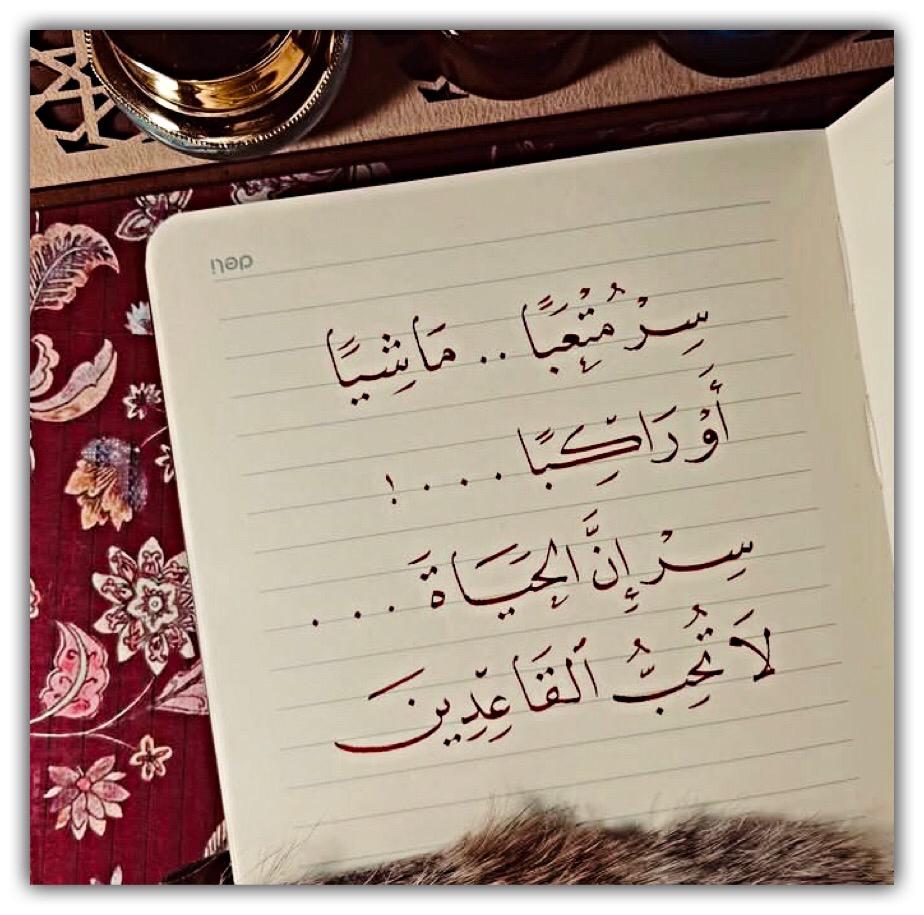 deli
سِرْ مُتْعِبًا .. مَاشِيًا
أَوْ رَاكِبًا .... !
سِرْ إِنَّ الحَيَاةَ ...
لَا تُحِبُّ ٱلقَاعِدِينَ